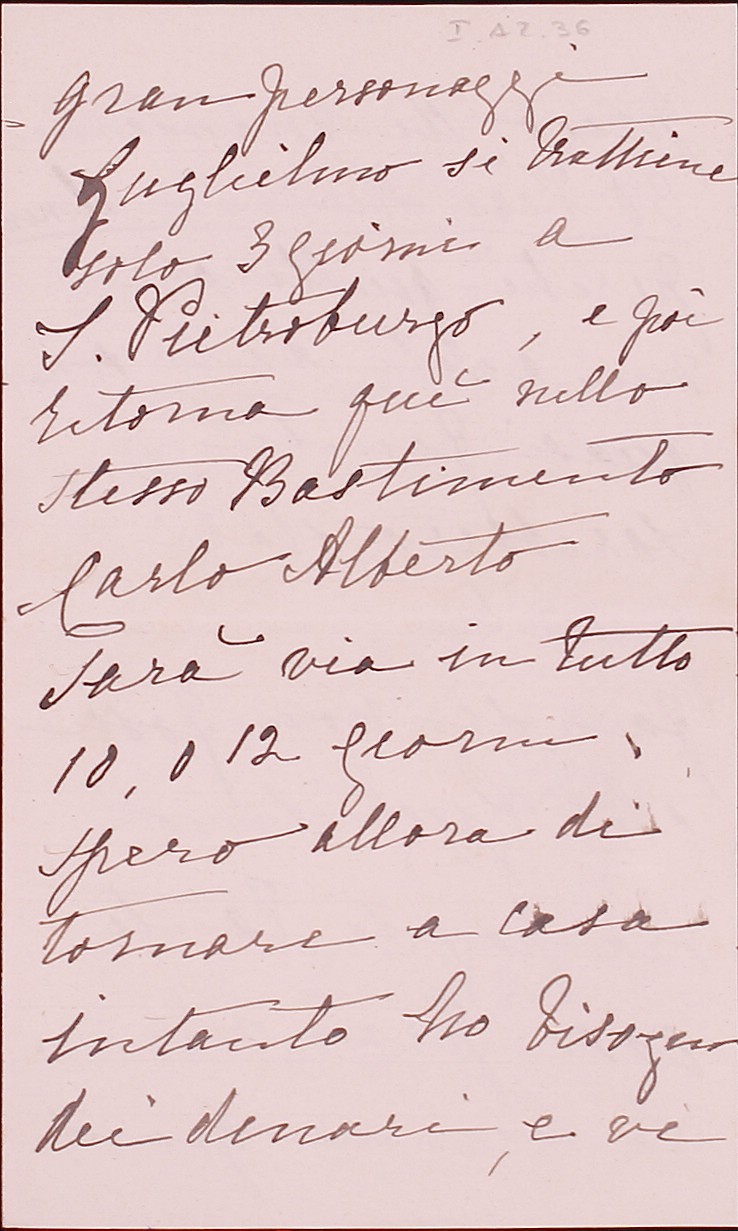 I A2.36
gran personaggi
Guglielmo si trattiene
solo 3 giorni a
S. Pietroburgo, e poi
ritorna quì nello
stesso Bastimento
Carlo Alberto
Sarà via in tutto
10, o 12 giorni,
spero allora di
tornare a casa
intanto ho bisogno
dei denari, e vi